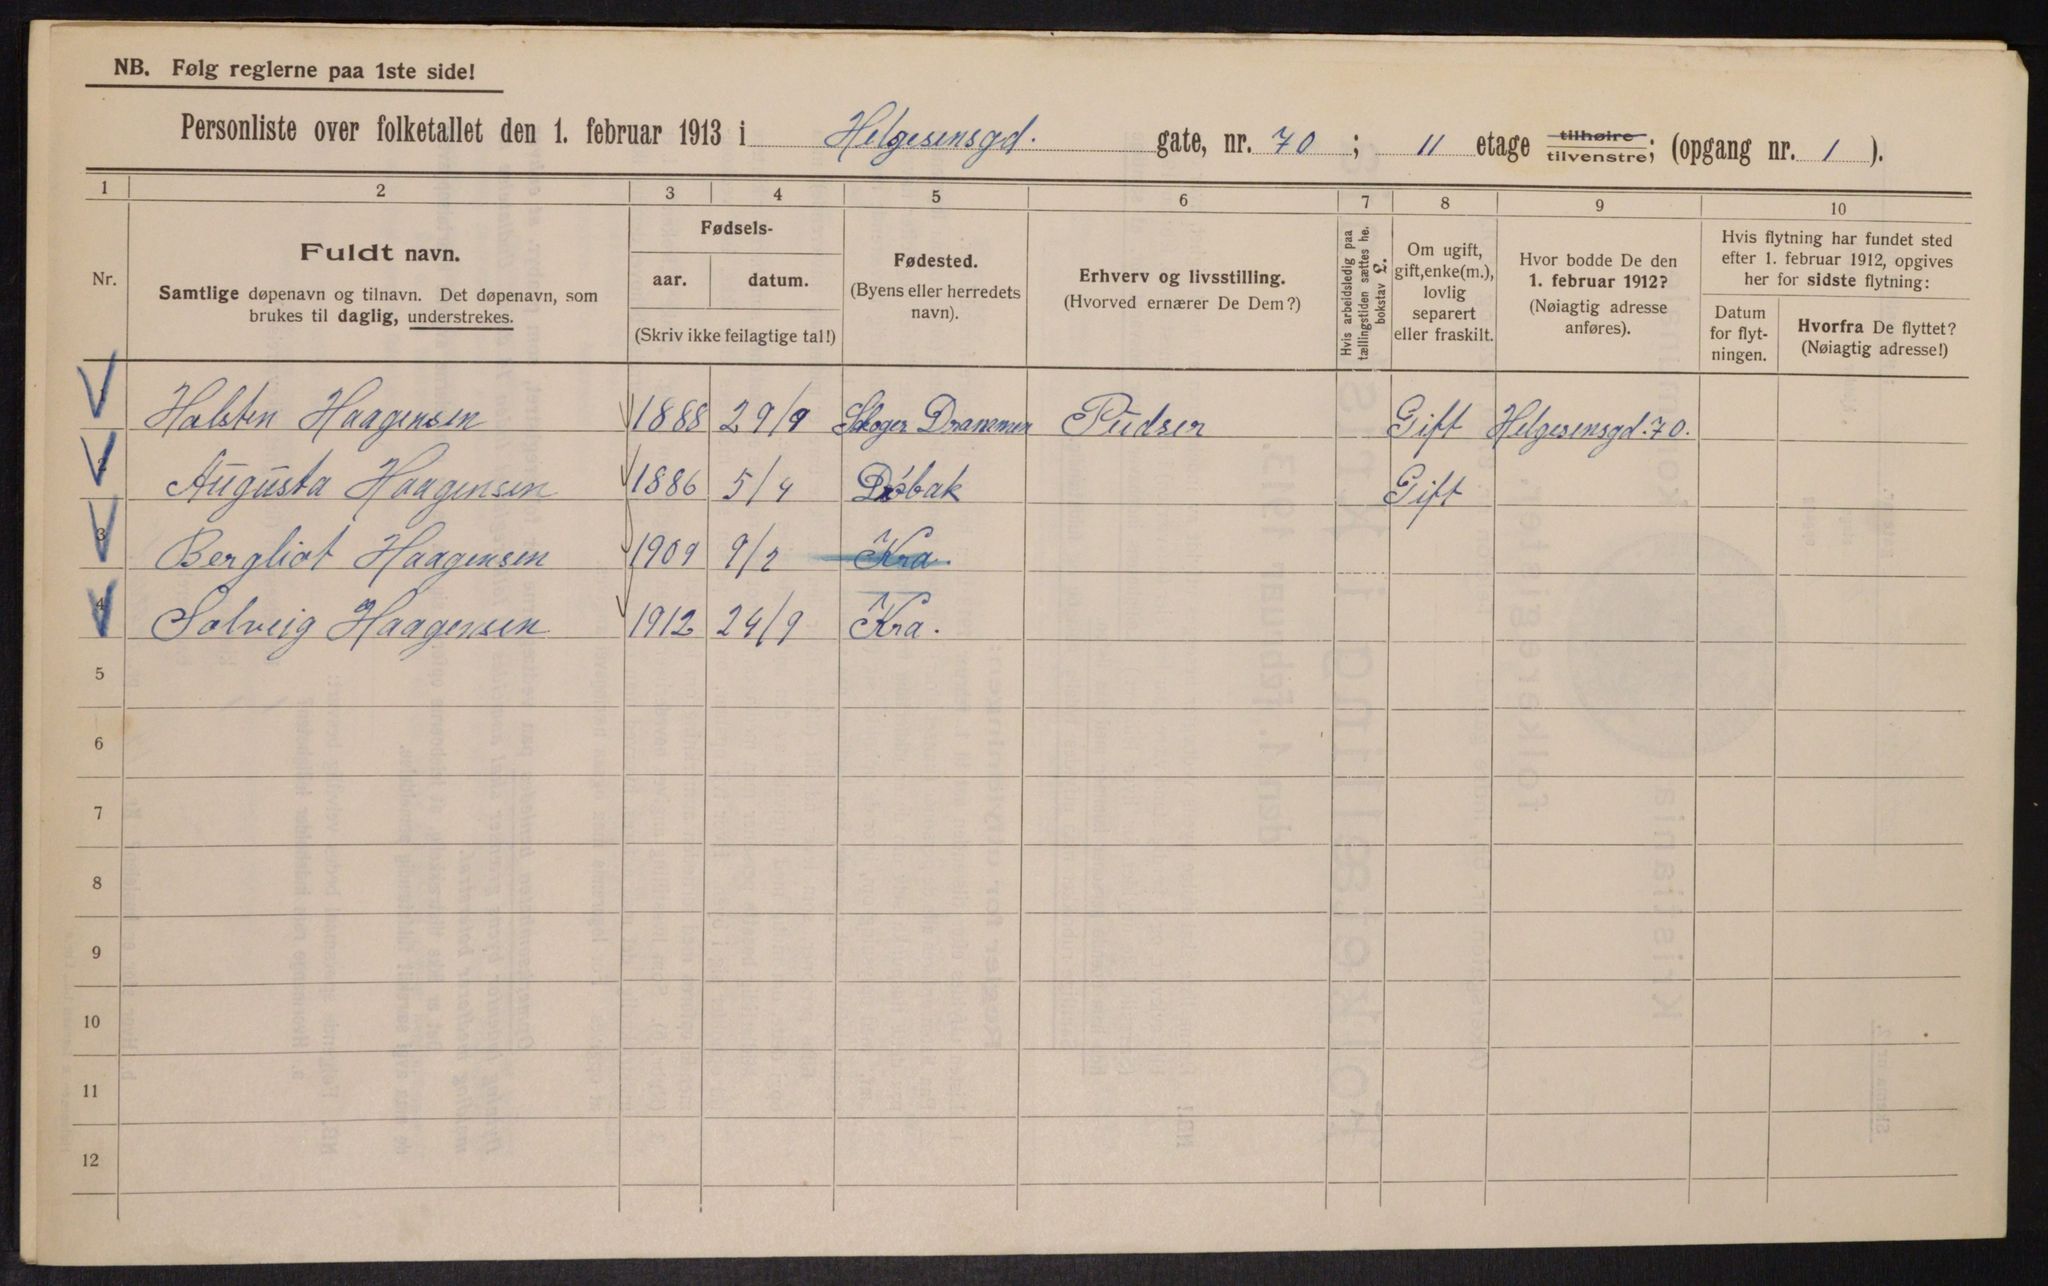 NB. Følg reglerne paa 1ste side!
Personliste over folketallet den 1. februar 1913 i Helgesensgd. gate, nr. 70 ; 11 etage tilhøire tilvenstre; (opgang nr. 1 ).
1 2 3 4 5 6 7 8 9 10
Nr.
Fuldt navn.
Samtlige døpenavn og tilnavn. Det døpenavn, som
brukes til daglig, understrekes.
Fødsels-
aar. datum.
(Skriv ikke feilagtige tal!)
Fødested.
(Byens eller herredets
navn).
Erhverv og livsstilling.
(Hvorved ernærer De Dem?)
Hvis arbeidsledig paa
tællingstiden sættes he.
bokstav L.
Om ugift,
gift,enke(m.),
lovlig
separert
eller fraskilt.
Hvor bodde De den
1. februar 1912?
(Nøiagtig adresse
anføres).
Hvis flytning har fundet sted
efter 1. februar 1912, opgives
her for sidste flytning:
Datum
for flyt-
ningen.
Hvorfra De flyttet?
(Nøiagtig adresse!)
1 Halsten Haagensen 1888 29/9 Skoger Drammen Pudser Gift Helgesensgd. 70.
2 Augusta Haagensen 1886 5/4 Drøbak Gift
3 Bergliot Haagensen 1909 9/2 Kra.
4 Solveig Haagensen 1912 24/9 Kra.
5
6
7
8
9
10
11
12